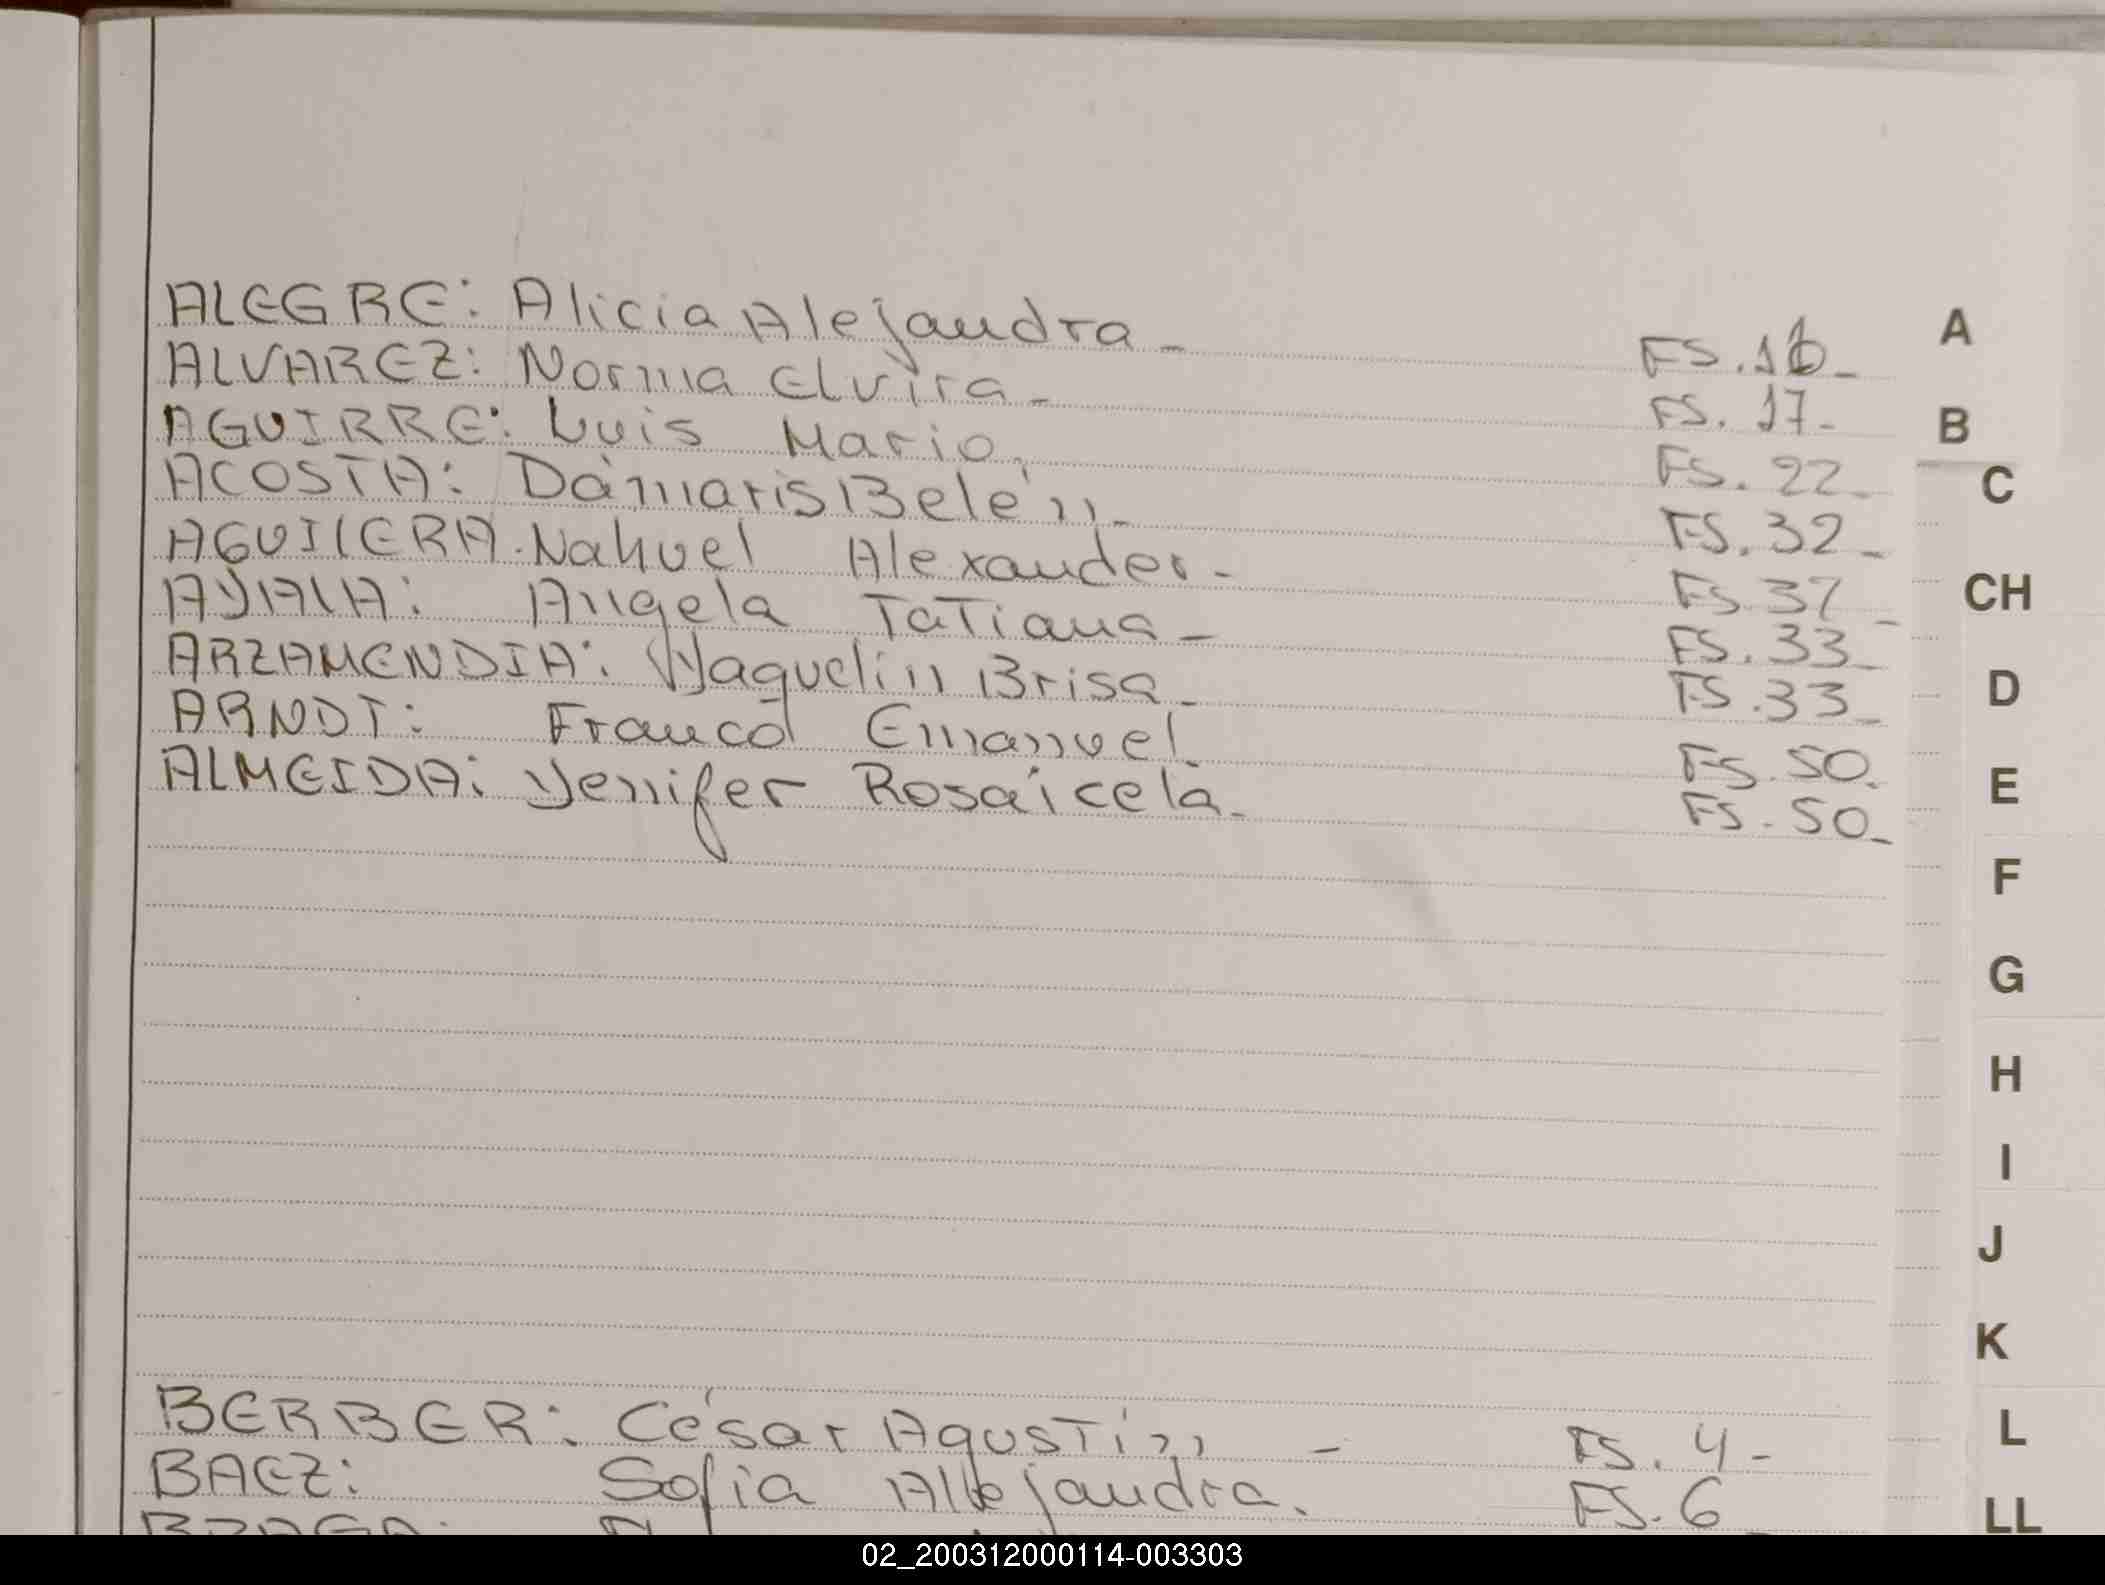 ALEGRE: Alicia Alejandra - FS. 16 -
ALVAREZ: Norma Elvira - FS. 17 -
AGUIRRE: Luis Mario. FS. 22 -
ACOSTA: Dámaris Belén - FS. 32 -
AGUILERA. Nahuel Alexander - FS. 37 -
AYALA: Angela Tatiana - FS. 33 -
ARZAMENDIA: Yaquelin Brisa - FS. 33 -
ARNDT: Franco Emanuel. FS. 50.
ALMEIDA: Yenifer Rosaicela - FS. 50 -
BERBER: César Agustín - FS. 4 -
BAEZ: Sofia Alejandra. FS. 6 -
A
B
C
CH
D
E
F
G
H
I
J
K
L
LL
02_200312000114-003303